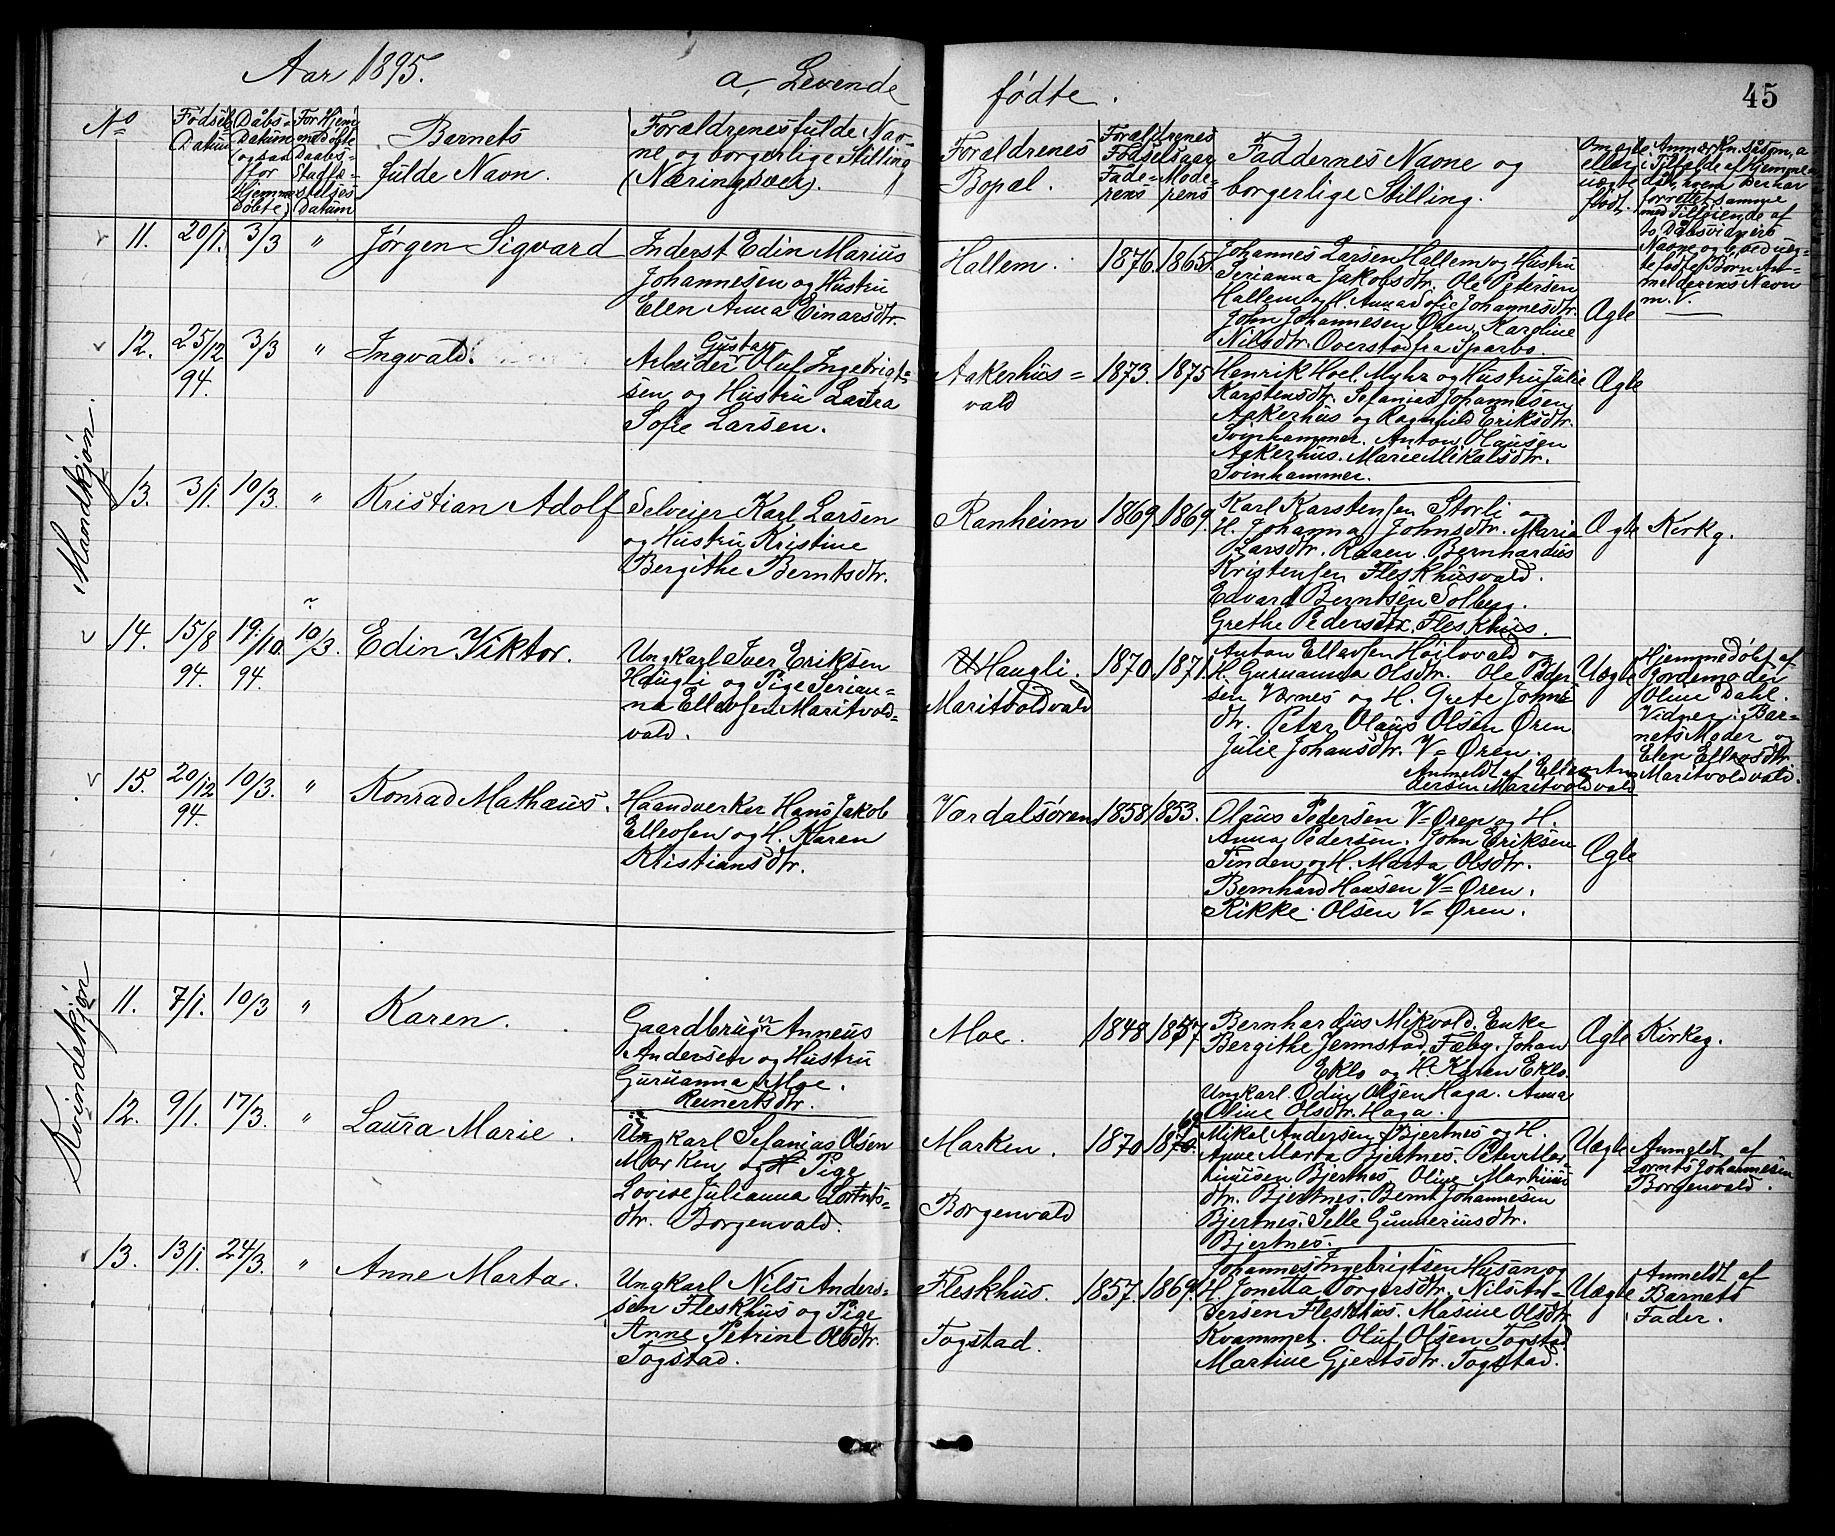 Aar 1895.
a, Levende
fødte.
45
No
Fødsels Datum
Daabs-
Datum
(ogsaa
for
Hjemme
døbte)
For Hjem-
medøbte
Daabs-
Stadfæ-
stelses
Datum
Barnets
fulde Navn.
Forældrenes fulde Nav-
ne og borgerlige Stilling
(Næringsvei).
Forældrenes
Bopæl.
Forældrenes
Fødselsaar
Fade-
rens
Mode-
rens
Faddernes Navne og
borgerlige Stilling.
Om ægte
eller
uægte
født.
Mandkjøn.
11. 20/1. 3/3 " Jørgen Sigvard
Inderst Edin Marius
Johannesen og Hustru
Elen Anna Einarsdtr.
Hallem. 1876. 1865.
Johannes Larsen Hallem og Hustru
Serianna Jakobsdtr. Ole Petersen
Hallem og H. Annasofie Johannesdtr.
John Johannesen Øren, Karoline
Nilsdtr. Overstad fra Sparbo.
Ægte
12. 25/12 94. 3/3 " Ingvald.
Gustav
Arbeider Oluf Ingebrigt-
sen og Hustru Laura
Sofie Larsen.
Aakerhus=
vald
1873. 1875
Henrik Hoel Myhr og Hustru Julie
Karstensdtr. Sefanias Johannesen
Aakerhus og Ragnhild Eriksdtr.
Svinhammer. Anton Olausen
Aakerhus. Marie Mikalsdtr.
Svinhammer.
Ægte
13. 3/1. 10/3. " Kristian Adolf
Selveier Karl Larsen
og Hustru Kristine
Bergithe Berntsdtr.
Ranheim 1869. 1869.
Karl Karstensen Storli og
H. Johanna Johnsdtr. Maria
Larsdtr. Raaen. Bernhardus
Kristensen Fleskhusvald.
Edvard Berntsen Solberg.
Grethe Pedersdtr. Fleskhus.
Ægte Kirkg.
14. 15/8 94. 19/10 94. 10/3. Edin Viktor.
Ungkarl Iver Eriksen
Haugli og Pige Serian-
na Ellevsen Maritvold-
vald.
Haugli.
Maritvoldvald
1870. 1871.
Anton Ellevsen Højlovald og
H. Guruanna Olsdtr. Ole Peder
sen Værnes og H. Grete Johns
dtr. Peter Olaus Olsen Øren
Julie Johansdtr. V=Øren.
Anmeldt af Ellev An
dersen Maritvoldvald
Uægte
Hjemmedøbt af
Jordemoder
Oline Dahl.
Vidner: Bar-
nets Moder og
Elen Ellevsdtr
Maritvoldvald.
15. 20/12 94. 10/3. " Konrad Mathæus.
Haandverker Hans Jakob
Ellevsen og H. Karen
Kristiansdtr.
Værdalsøren 1858. 1853.
Olaus Pedersen V=Øren og H.
Anna Pedersen. John Eriksen
Tinden og H. Marta Olsdtr.
Bernhard Hansen V=Øren.
Rikke Olsen V=Øren.
Ægte
Kvindekjøn
11. 7/1. 10/3 " Karen.
Gaardbruger Anneus
Andersen og Hustru
Guruanna Moe.
Reinertsdtr.
Moe. 1848 1857
Bernhardus Mikvold. Enke
Bergithe Jermstad, Fæby. Johan
Eklo og H. Karen Eklo.
Ungkarl Odin Olsen Haga. Anna
Oline Olsdtr. Haga.
Ægte Kirkeg.
12. 9/1. 17/3. " Laura Marie.
Ungkarl Sefanias Olsen
Marken og Pige
Lovise Julianna Lornts-
dtr. Borgenvald.
Marken.
Borgenvald
1870
Mikal Andersen Bjertnes og H.
Ane Marta Bjertnes. Peter Mar
tinusen Bjertnes. Oline Martinus
dtr. Bjertnes. Bernt Johannesen
Bjertnes. Selle Gunneriusdtr.
Bjertnes.
Uægte
Anmeldt af
Lornts Johannesen
Borgenvald.
13. 13/1. 24/3. " Anne Marta.
Ungkarl Nils Anders-
sen Fleskhus og Pige
Anne Petrine Olsdtr.
Togstad.
Fleskhus.
Togstad.
1857. 1869.
Johannes Ingebrigtsen Husan og
H. Jonetta Torgersdtr. Nils An-
dersen Fleskhus. Masine Olsdtr
Kvammet. Oluf Olsen Togstad
Martine Gjertsdtr. Togstad.
Uægte
Anmeldt af
Barnets
Fader.